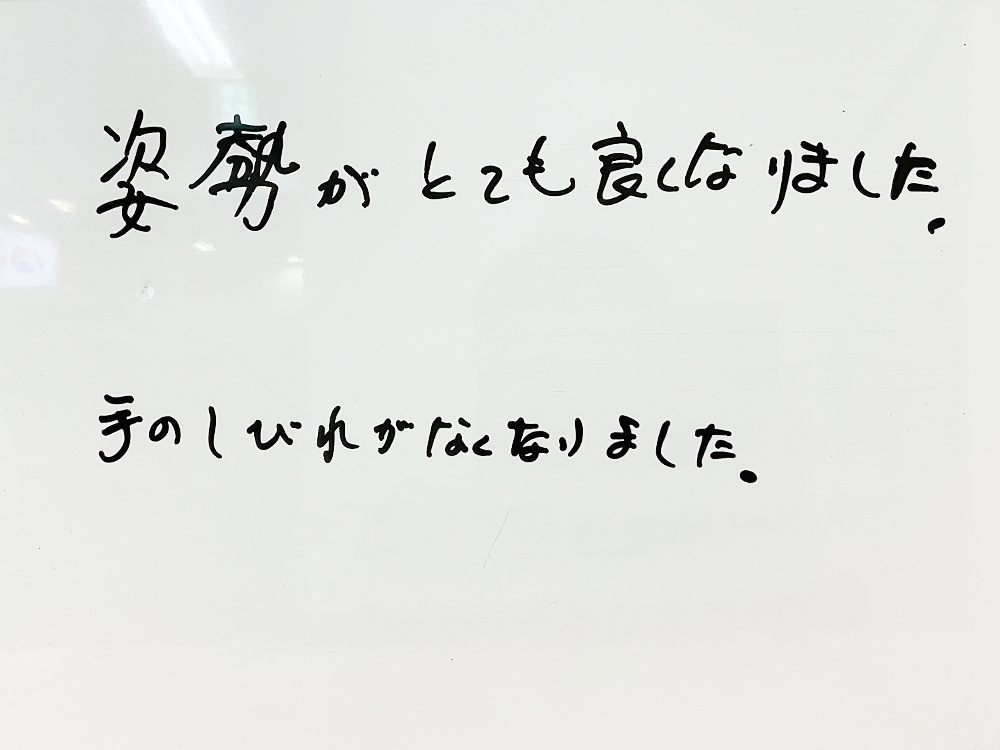 姿勢がとても良くなりました。
手のしびれがなくなりました。